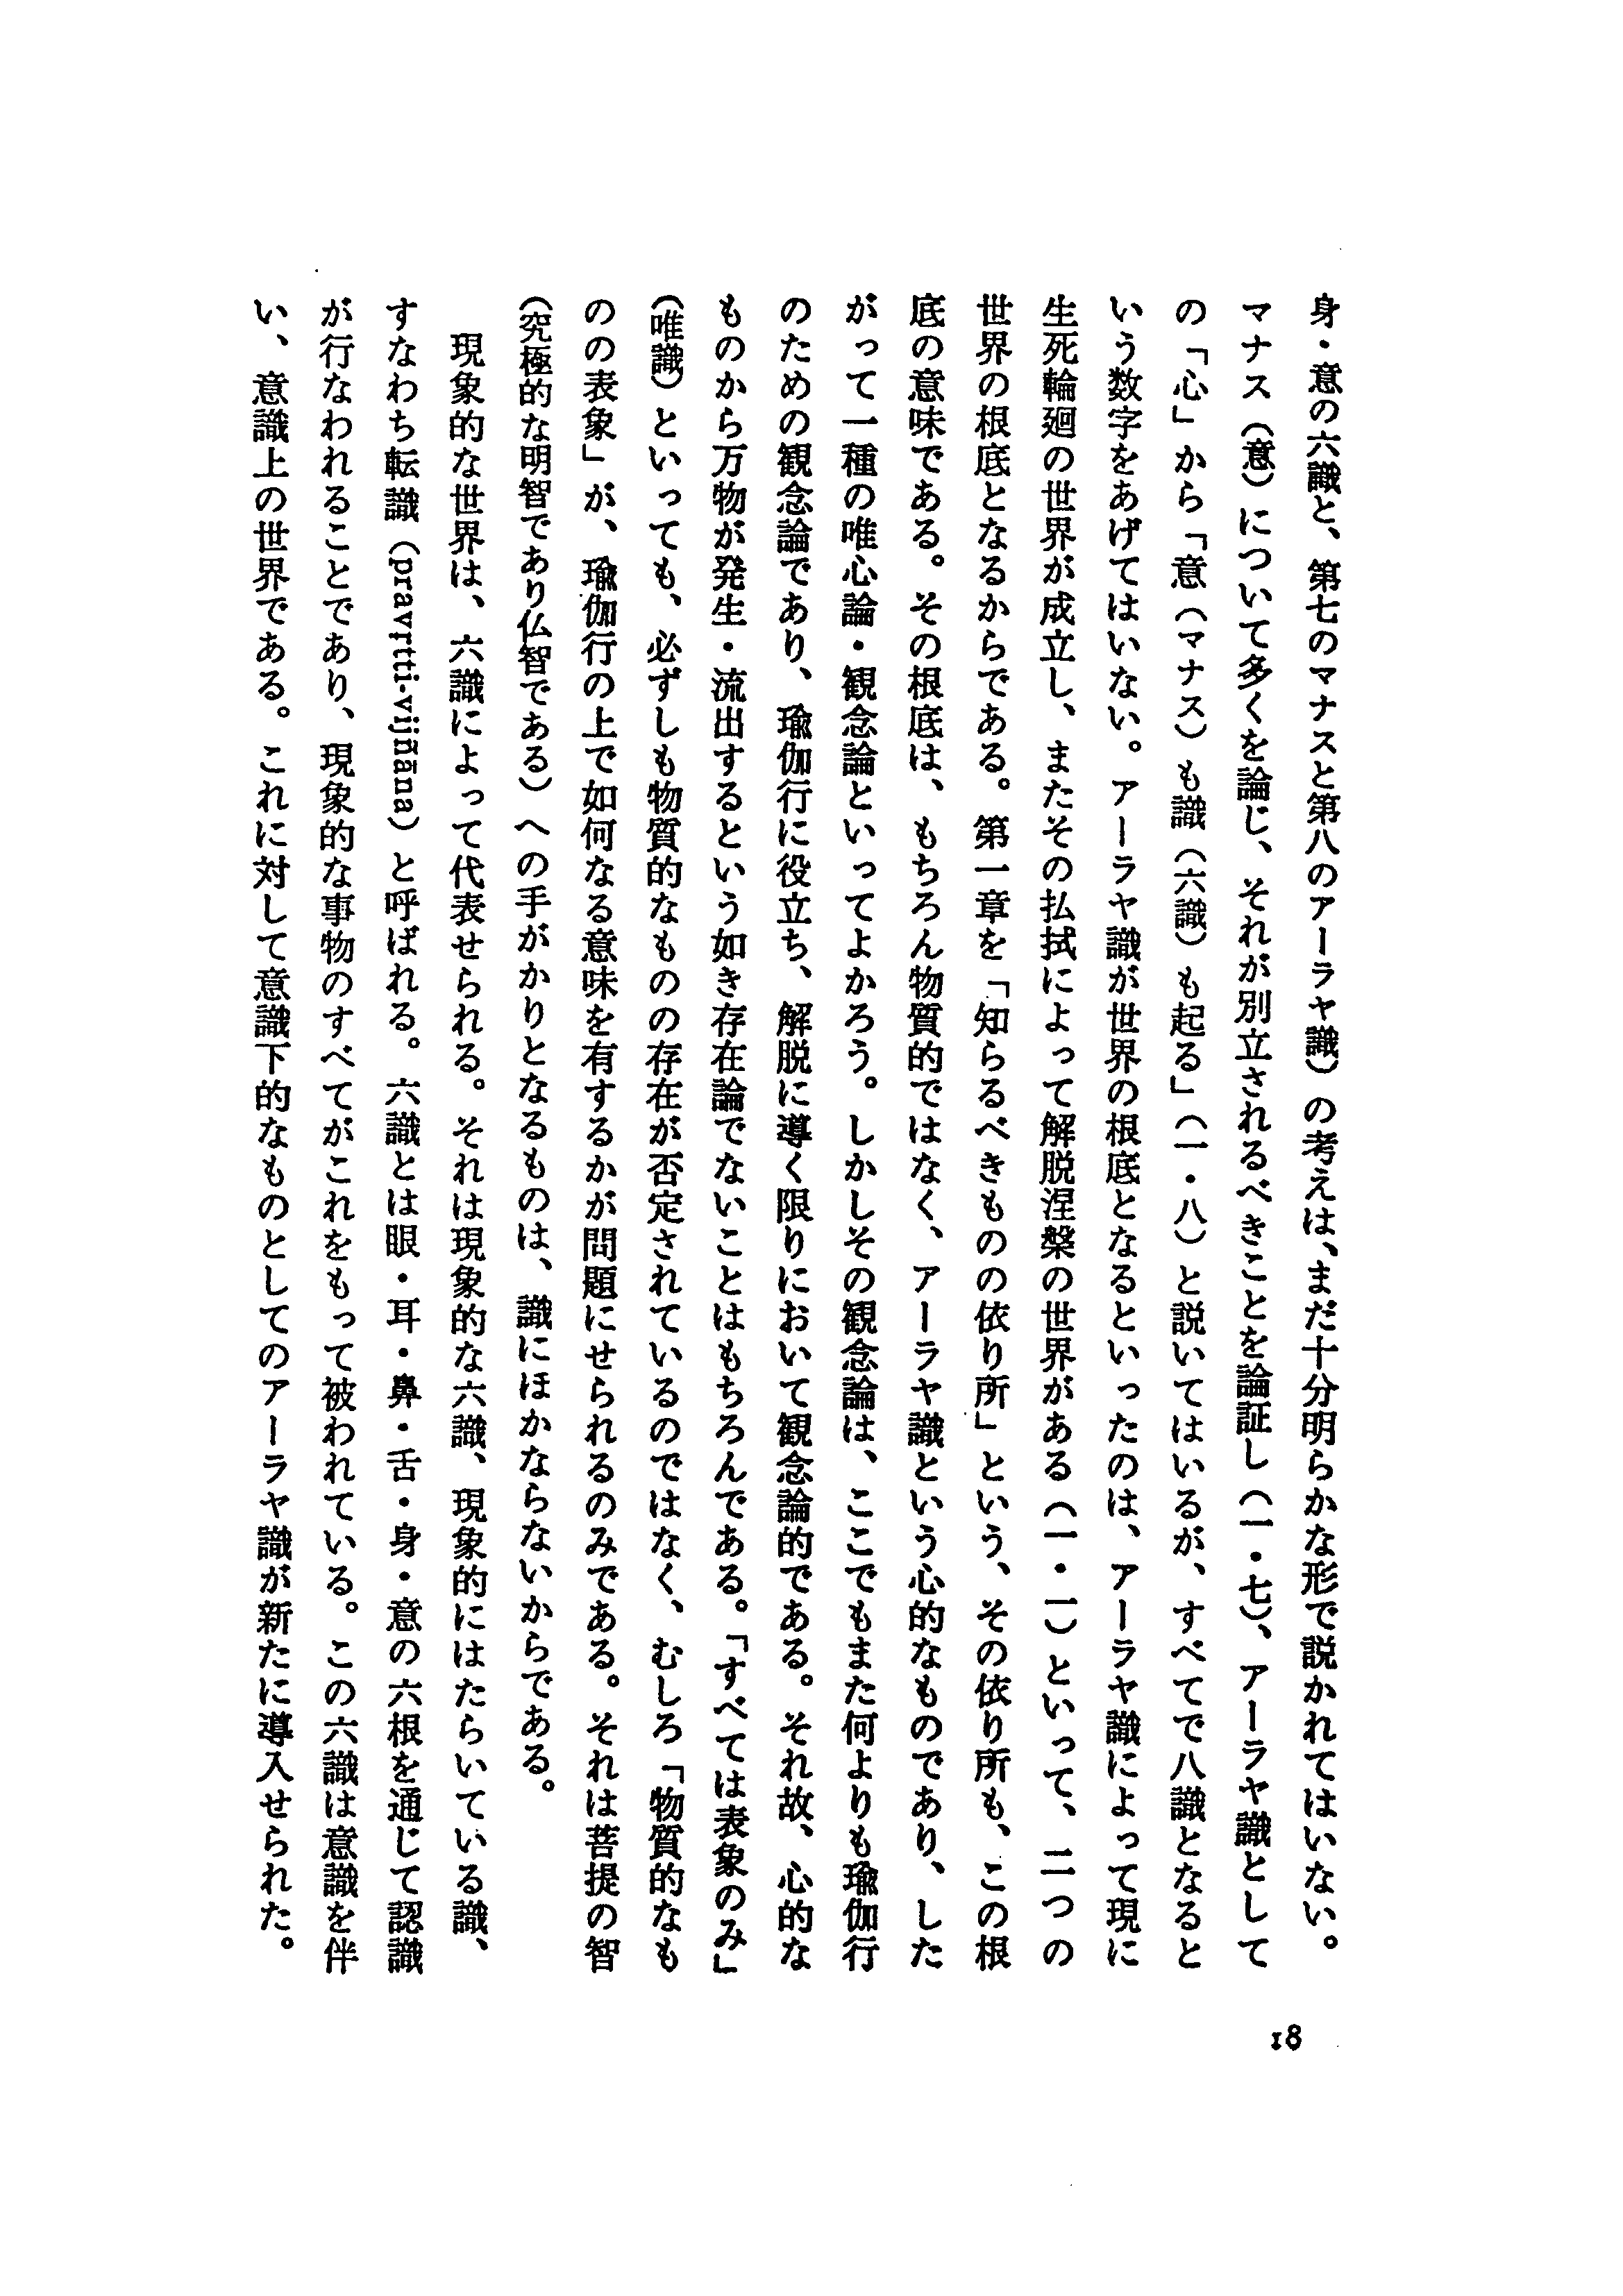 身・意の六識と、第七のマナスと第八のアーラヤ識）の考えは、まだ十分明らかな形で説かれてはいない。
マナス（意）について多くを論じ、それが別立されるべきことを論証し（一・七）、アーラヤ識として
の「心」から「意（マナス）も識（六識）も起る」（一・八）と説いてはいるが、すべてで八識となると
いう数字をあげてはいない。アーラヤ識が世界の根底となるといったのは、アーラヤ識によって現に
生死輪廻の世界が成立し、またその払拭によって解脱涅槃の世界がある（一・一）といって、二つの
世界の根底となるからである。第一章を「知らるべきものの依り所」という、その依り所も、この根
底の意味である。その根底は、もちろん物質的ではなく、アーラヤ識という心的なものであり、した
がって一種の唯心論・観念論といってよかろう。しかしその観念論は、ここでもまた何よりも瑜伽行
のための観念論であり、瑜伽行に役立ち、解脱に導く限りにおいて観念論的である。それ故、心的な
ものから万物が発生・流出するという如き存在論でないことはもちろんである。「すべては表象のみ」
（唯識）といっても、必ずしも物質的なものの存在が否定されているのではなく、むしろ「物質的なも
のの表象」が、瑜伽行の上で如何なる意味を有するかが問題にせられるのみである。それは菩提の智
（究極的な明智であり仏智である）への手がかりとなるものは、識にほかならないからである。
現象的な世界は、六識によって代表せられる。それは現象的な六識、現象的にはたらいている識、
すなわち転識（pravṛtti-vijñāna）と呼ばれる。六識とは眼・耳・鼻・舌・身・意の六根を通じて認識
が行なわれることであり、現象的な事物のすべてがこれをもって被われている。この六識は意識を伴
い、意識上の世界である。これに対して意識下的なものとしてのアーラヤ識が新たに導入せられた。
18